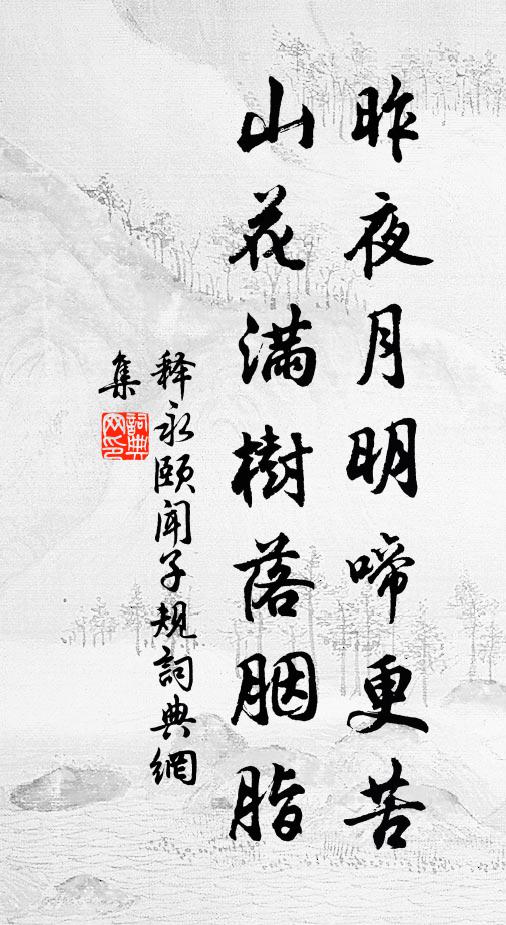 昨夜月明啼更苦
山花滿樹落胭脂
释永颐闻子规詞典網
集
詞典
网印